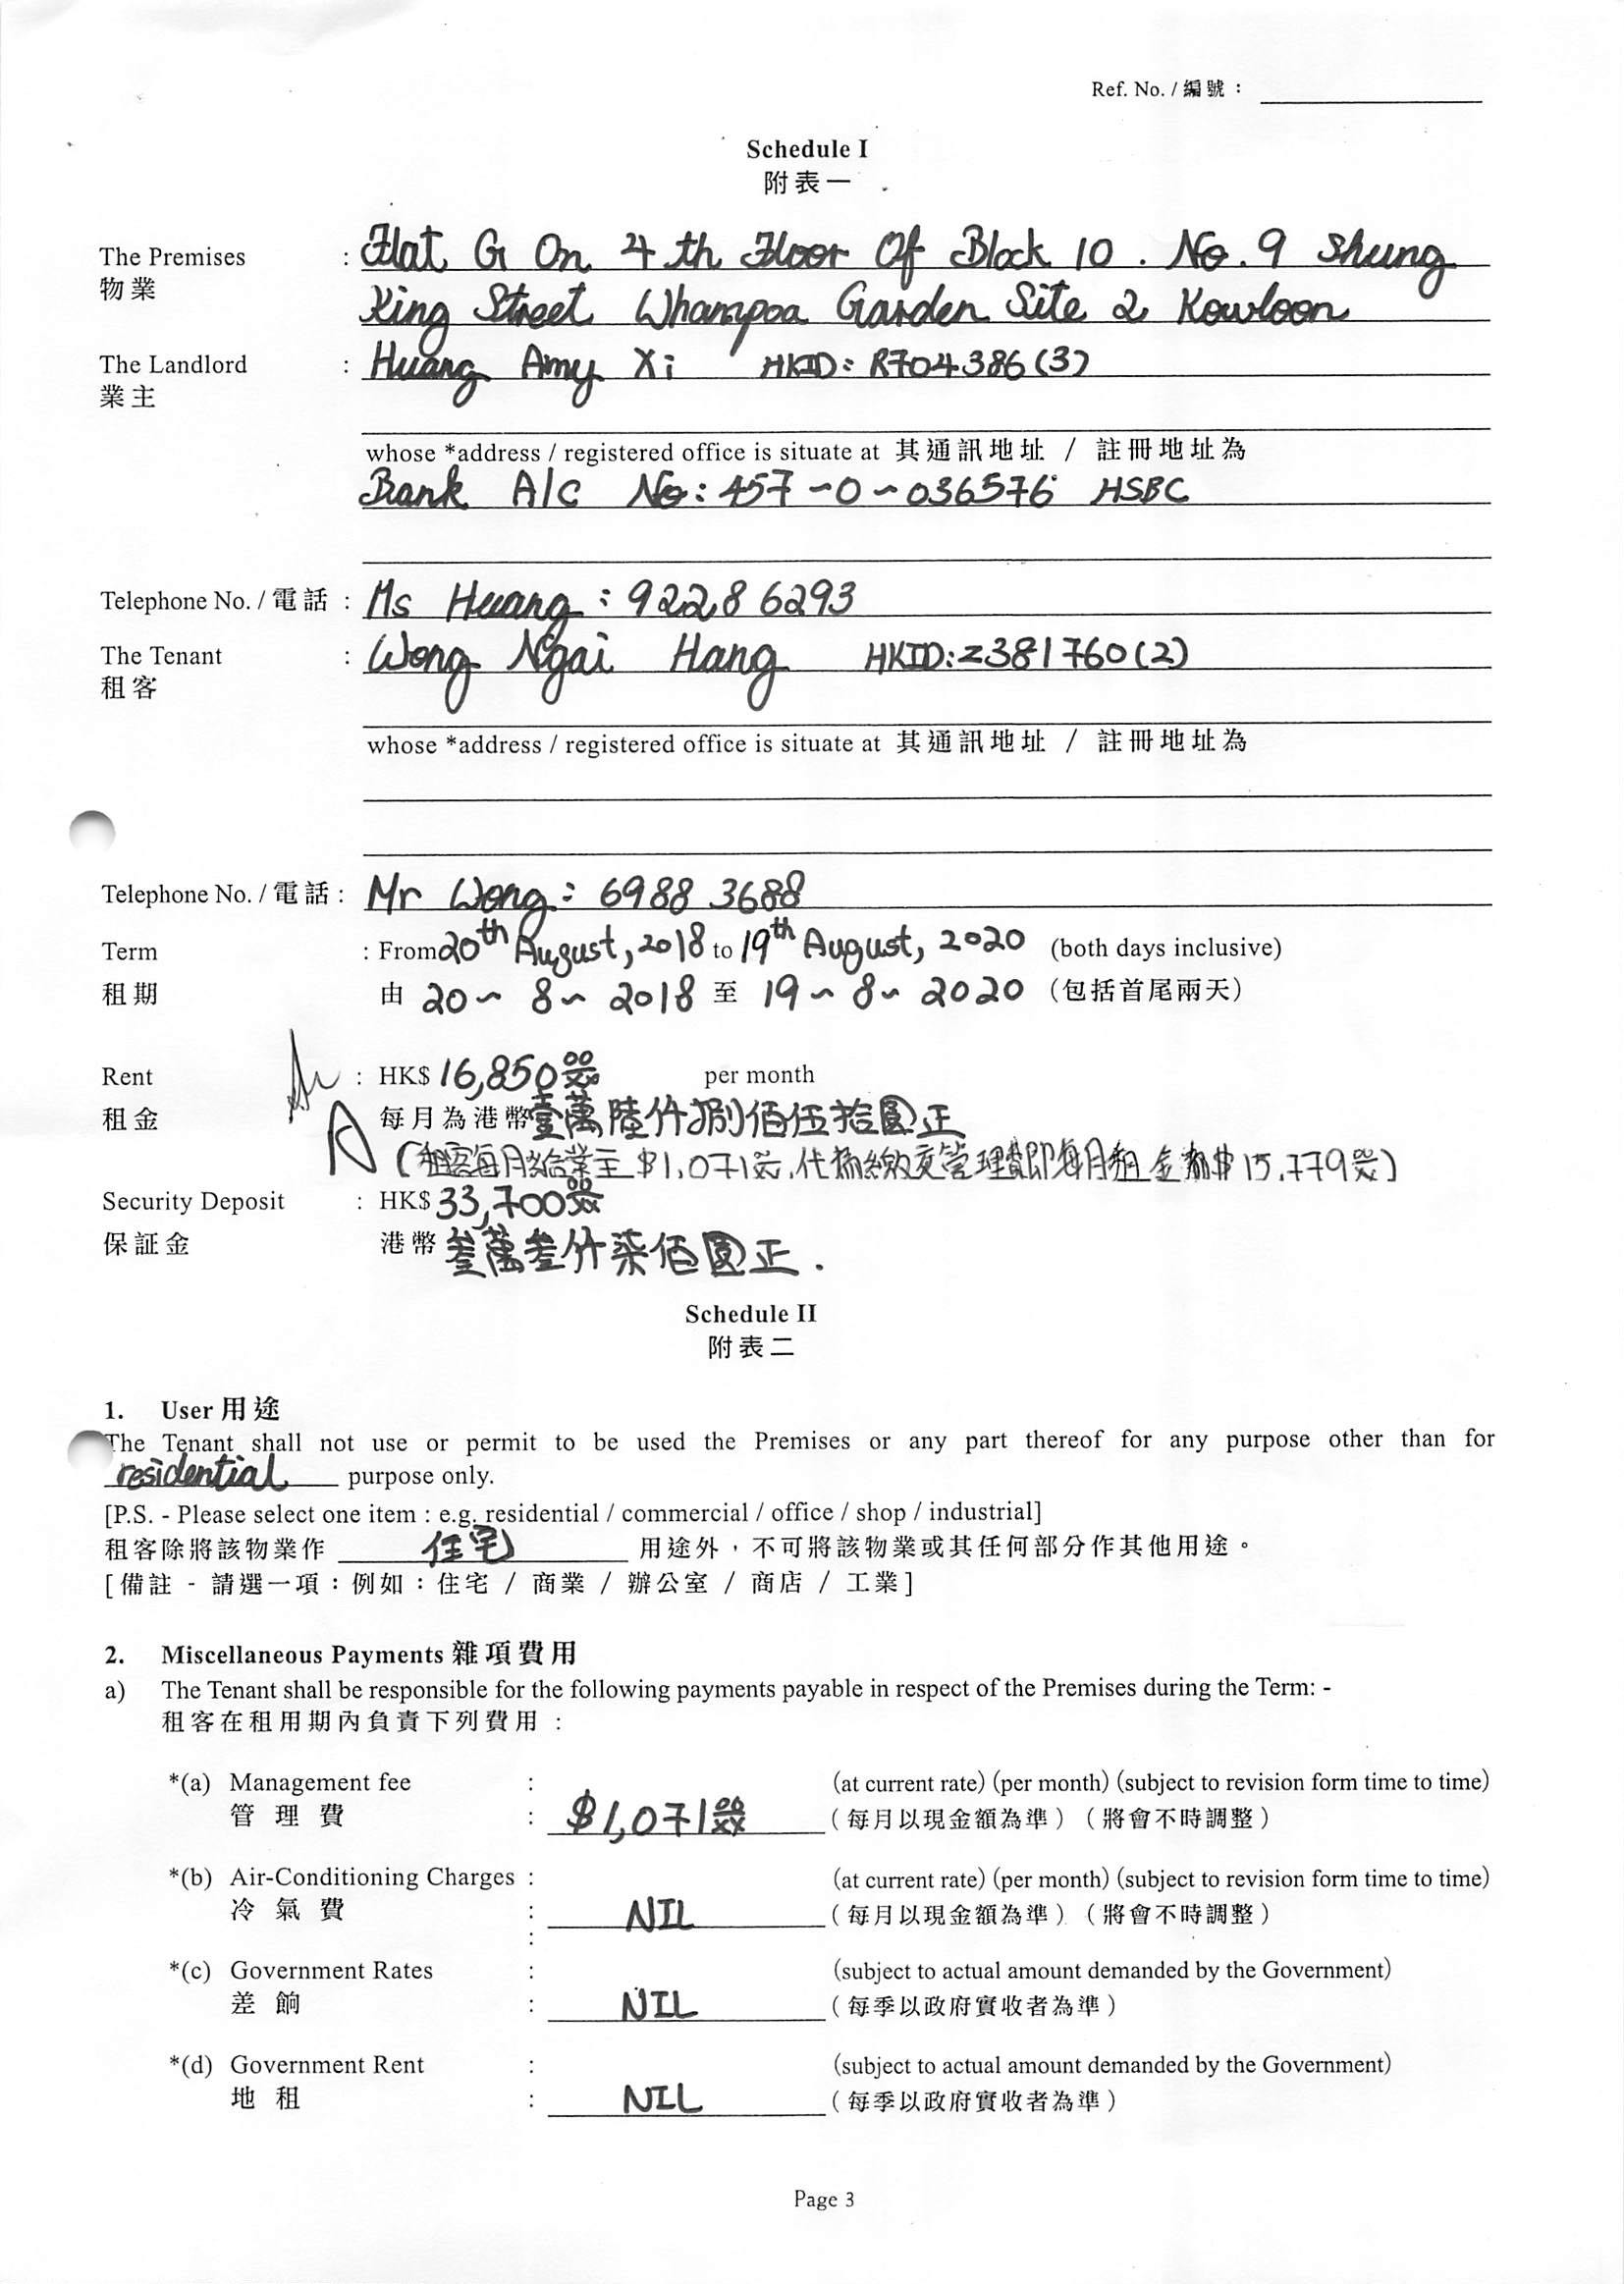 Ref. No. / 編號 :
Schedule I
附表一
The Premises : Flat G On 4th Floor Of Block 10. No. 9 Shung
物業 King Street Whampoa Garden Site 2 Kowloon
The Landlord : Huang Amy Xi HKID: R704386(3)
業主
whose *address / registered office is situate at 其通訊地址 / 註冊地址為
Bank A/C No: 457-0-036576 HSBC
Telephone No. / 電話 : Ms Huang: 9228 6293
The Tenant : Wong Ngai Hang HKID: Z381760(2)
租客
whose *address / registered office is situate at 其通訊地址 / 註冊地址為
Telephone No. / 電話 : Mr Wong: 6988 3688
Term : From 20th August, 2018 to 19th August, 2020 (both days inclusive)
租期 由 20-8-2018 至 19-8-2020 (包括首尾兩天)
Rent : HK$ 16,850 00/xx per month
租金 每月為港幣壹萬陸仟捌佰伍拾圓正
(租客每月給業主$1,071 00/xx,代為繳交管理費即每月租金為$15,779 00/xx)
Security Deposit : HK$ 33,700 00/xx
保証金 港幣 叁萬叁仟柒佰圓正.
Schedule II
附表二
1. User 用途
The Tenant shall not use or permit to be used the Premises or any part thereof for any purpose other than for
residential purpose only.
[P.S. - Please select one item : e.g. residential / commercial / office / shop / industrial]
租客除將該物業作 住宅 用途外，不可將該物業或其任何部分作其他用途。
[備註 - 請選一項：例如：住宅 / 商業 / 辦公室 / 商店 / 工業]
2. Miscellaneous Payments 雜項費用
a) The Tenant shall be responsible for the following payments payable in respect of the Premises during the Term: -
租客在租用期內負責下列費用：
*(a) Management fee : (at current rate) (per month) (subject to revision form time to time)
管理費 : $1,071 00/xx (每月以現金額為準) (將會不時調整)
*(b) Air-Conditioning Charges : (at current rate) (per month) (subject to revision form time to time)
冷氣費 : NIL (每月以現金額為準) (將會不時調整)
*(c) Government Rates : (subject to actual amount demanded by the Government)
差餉 : NIL (每季以政府實收者為準)
*(d) Government Rent : (subject to actual amount demanded by the Government)
地租 : NIL (每季以政府實收者為準)
Page 3